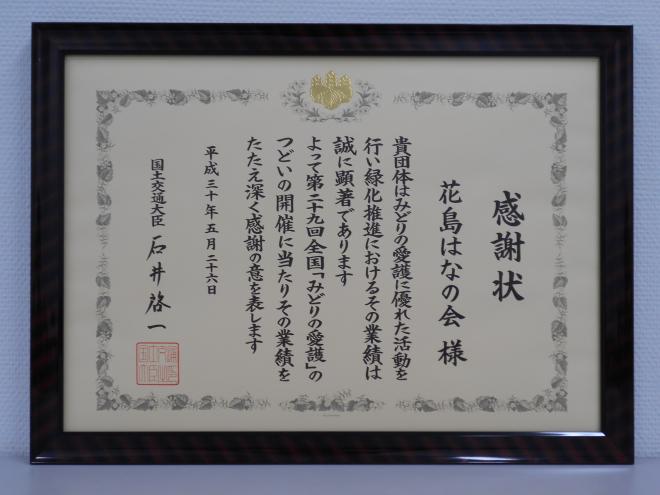 感謝状
花島はなの会 様
貴団体はみどりの愛護に優れた活動を
行い緑化推進におけるその業績は
誠に顕著であります
よって第二十九回全国「みどりの愛護」の
つどいの開催に当たりその業績を
たたえ深く感謝の意を表します
平成三十年五月二十六日
国土交通大臣 石井啓一